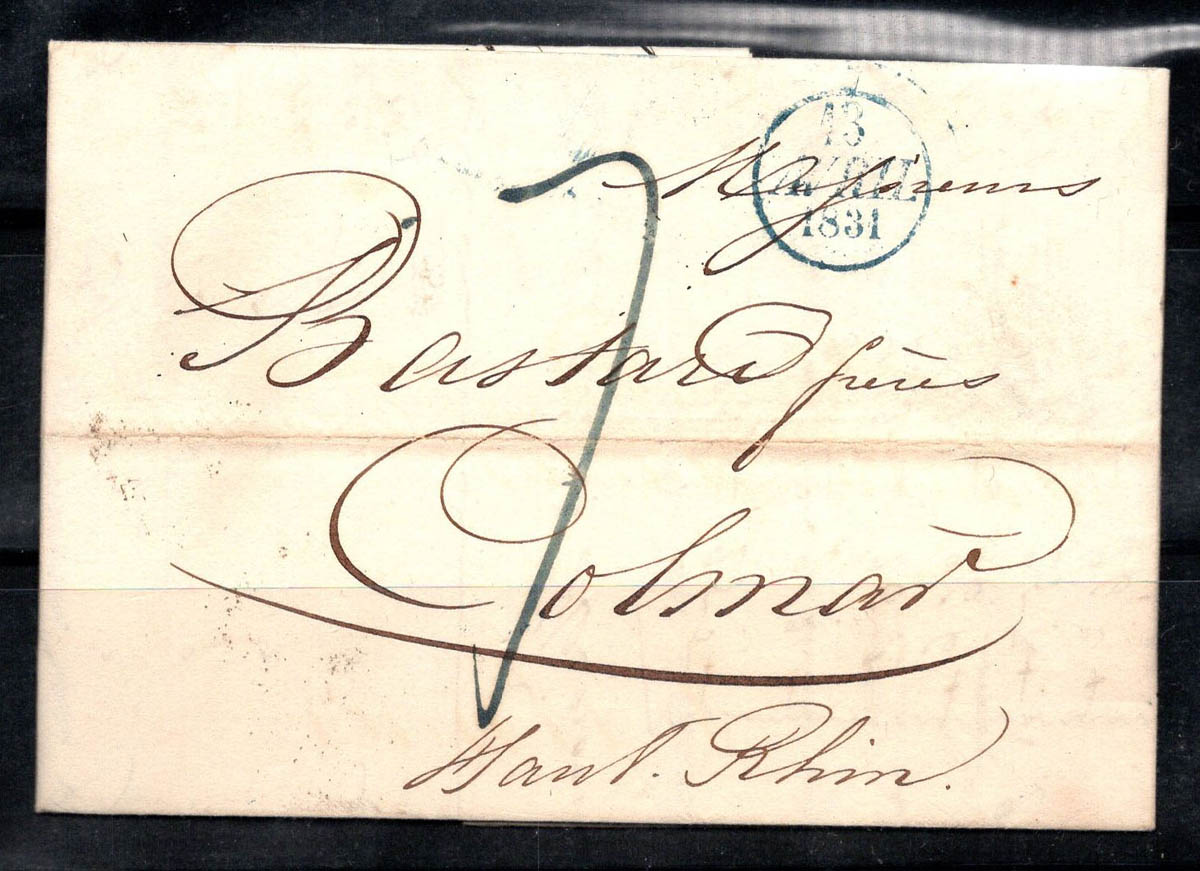 13
AVRIL
1831
Messieurs
Bastard frères
Colmar
Haut. Rhin.
7